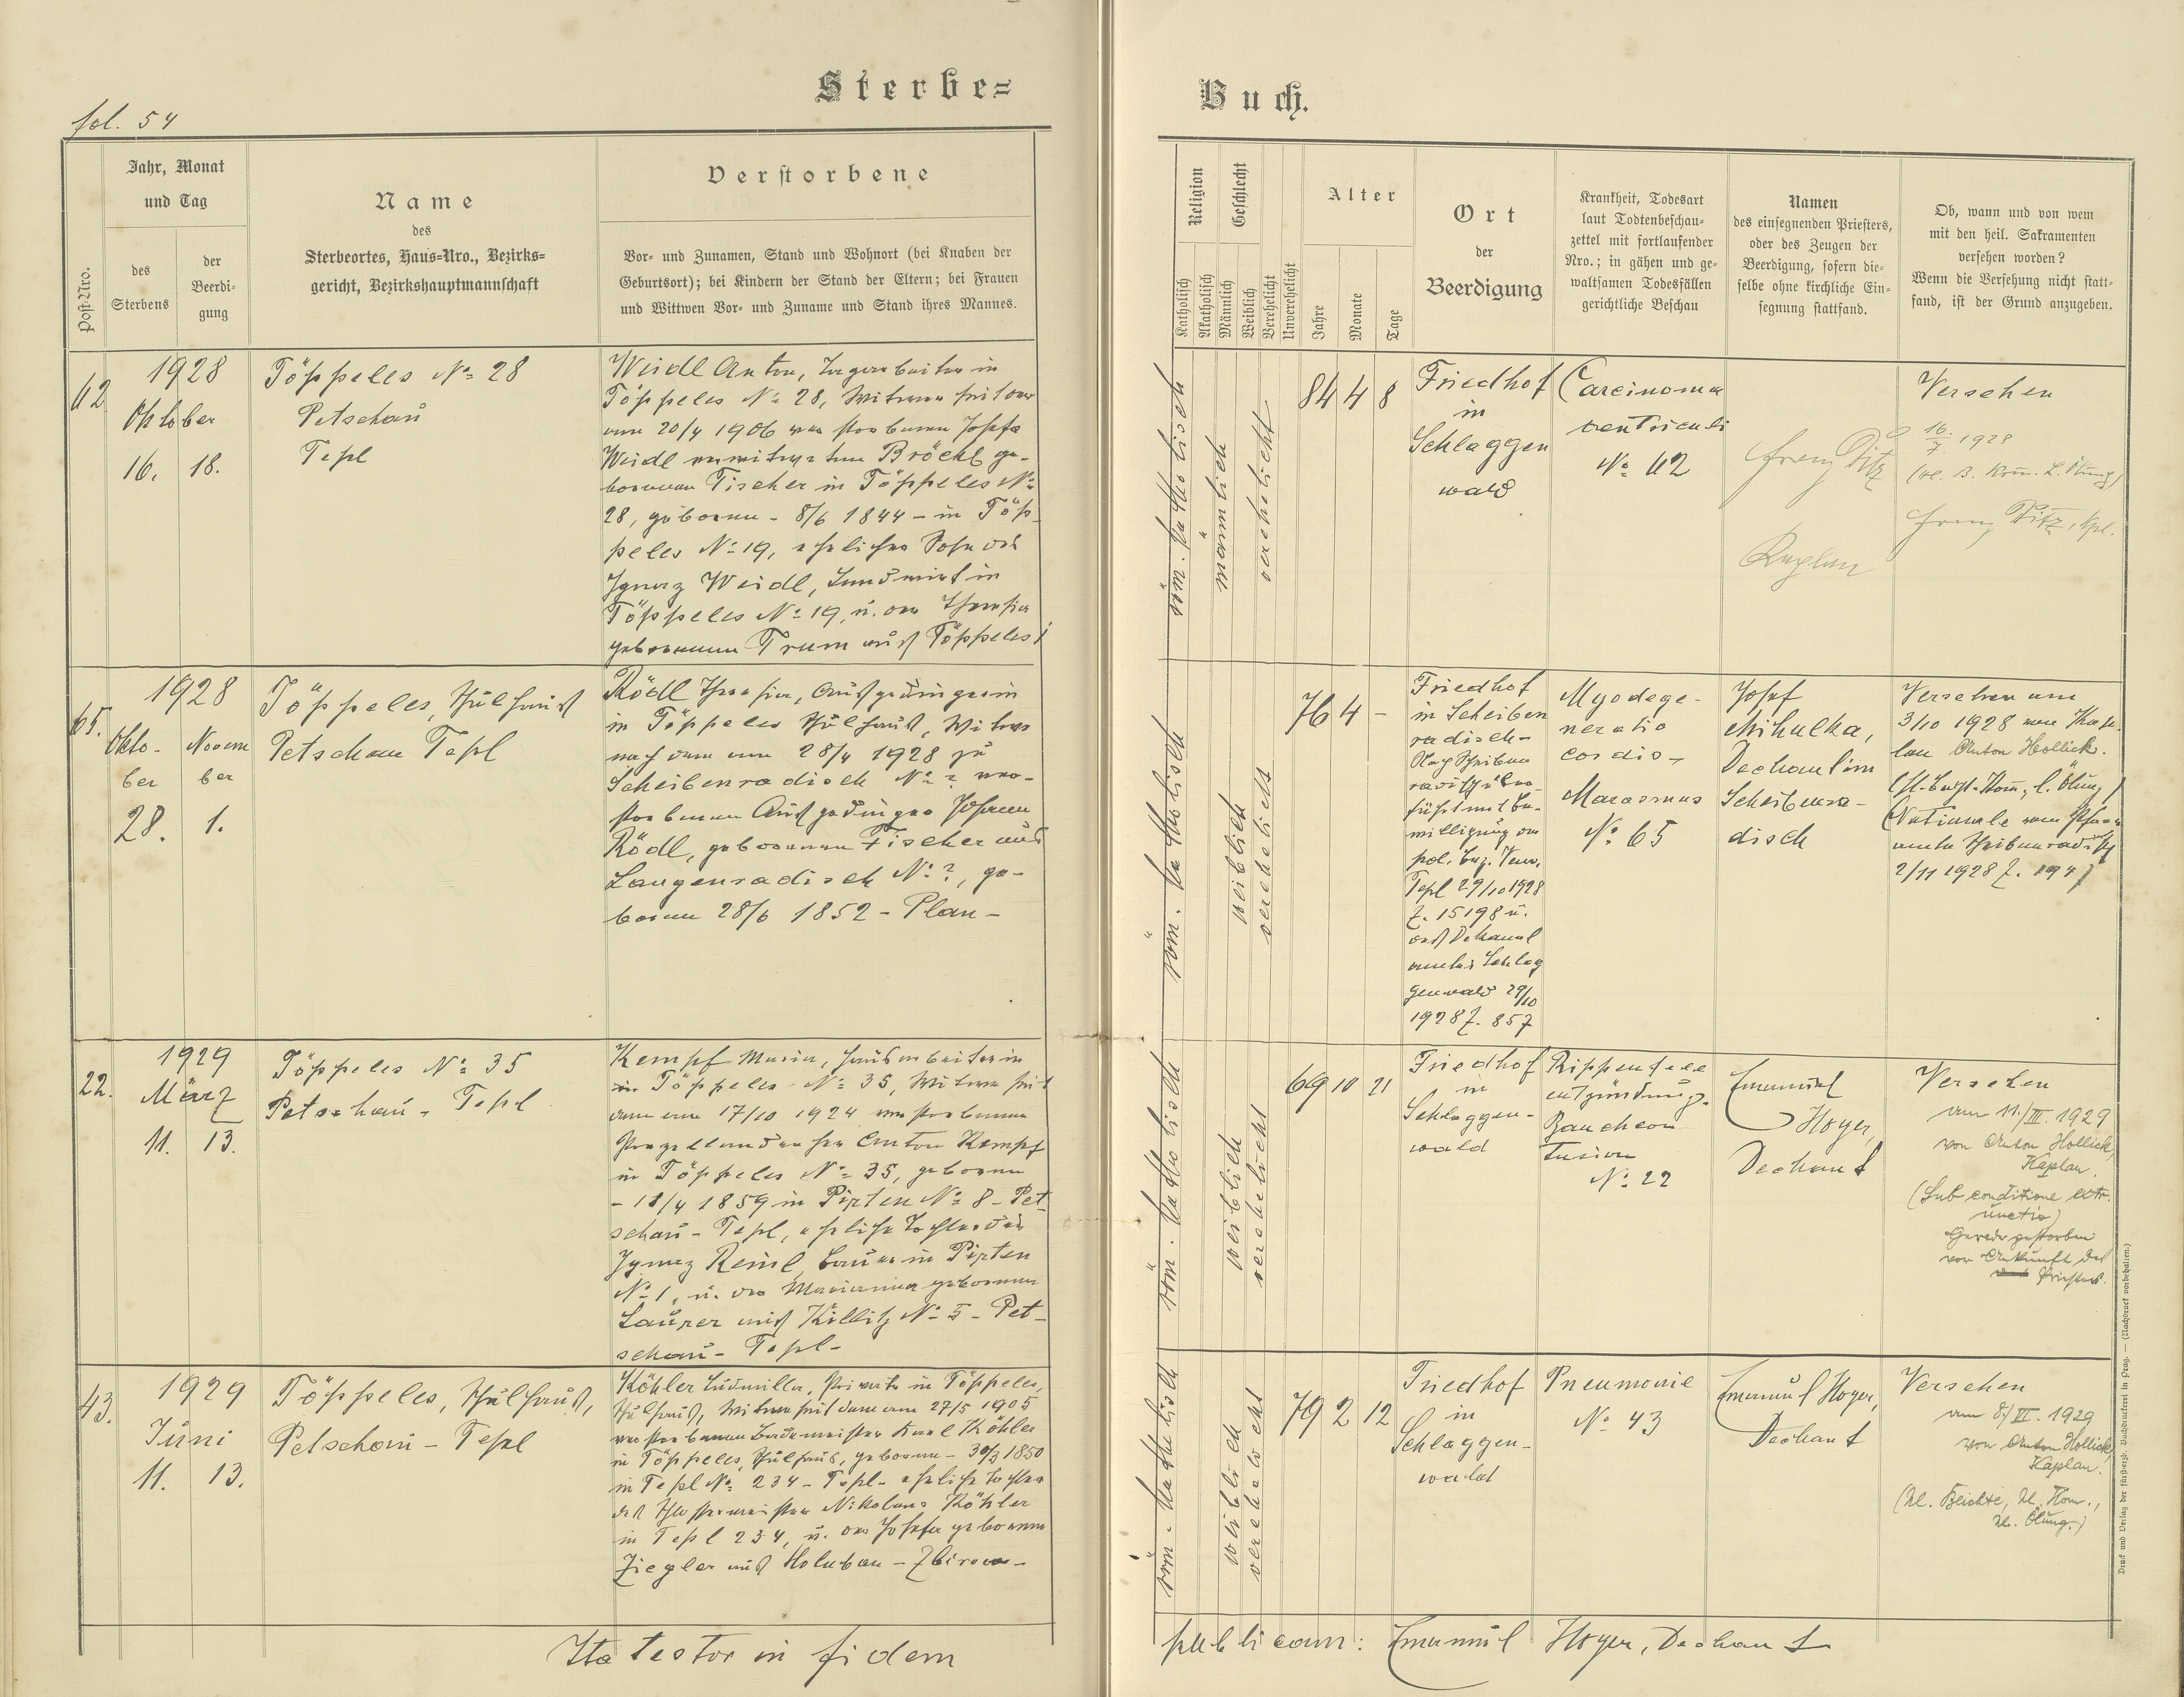 Sterbe=
Buch.
fol. 54
Post-Nro.
Jahr, Monat
und Tag
des
Sterbens
der
Beerdi-
gung
Name
des
Sterbeortes, Haus=Nro., Bezirks=
gericht, Bezirkshauptmannschaft
Verstorbene
Vor- und Zunamen, Stand und Wohnort (bei Knaben der
Geburtsort); bei Kindern der Stand der Eltern; bei Frauen
und Wittwen Vor- und Zuname und Stand ihres Mannes.
Religion
Katholisch
Akatholisch
Geschlecht
Männlich
Weiblich
Verehelicht
Unverehelicht
Alter
Jahre
Monate
Tage
Ort
der
Beerdigung
Krankheit, Todesart
laut Todtenbeschau-
zettel mit fortlaufender
Nro.; in gähen und ge-
waltsamen Todesfällen
gerichtliche Beschau
Namen
des einsegnenden Priesters,
oder des Zeugen der
Beerdigung, sofern die-
selbe ohne kirchliche Ein-
segnung stattfand.
Ob, wann und von wem
mit den heil. Sakramenten
versehen worden?
Wenn die Versehung nicht statt-
fand, ist der Grund anzugeben.
62
1928
Oktober
16. 18.
Töppeles No 28
Petschau
Tepl
Weidl Anton, Tagarbeiter in
Töppeles No 28, Witwer seit der
am 20/4 1906 verstorbenen Josefa
Weidl verwitweten Bröckl ge-
borenen Fischer in Töppeles No
28, geboren - 8/6 1844 - in Töp-
peles No 19, ehelicher Sohn des
Ignaz Weidl, Landwirt in
Töppeles No 19, u. der Theresia
geborenen Trum aus Töppeles
röm. katholisch
männlich
verehelicht
84 4 8
Friedhof
in
Schlaggen
wald
Carcinoma
ventriculi
No 62
Franz Pitz
Kaplan
Versehen
16./7. 1928
Franz Pitz, Kpl.
65.
1928
Okto-
ber
28.
Novem
ber
1.
Töppeles, Schulhaus
Petschau Tepl
Rödl Theresia, Ausgedingerin
in Töppeles Schulhaus, Witwe
nach dem am 28/4 1928 zu
Scheibenradisch No ? ver-
storbenen Ausgedinger Johann
Rödl, geborenen Fischer aus
Langenradisch No ?, ge-
boren 28/6 1852 - Plan -
röm. katholisch
weiblich
verehelicht
76 4 -
Friedhof
in Scheiben
radisch -
Nach Scheiben
radisch über-
führt mit Be-
willigung der
pol. Bez. Verw.
Tepl 29/10 1928
Z. 15198 u.
des Dekanal
amtes Schlag
genwald 29/10
1928 Z. 857
Myodege-
neratio
cordis -
Marasmus
No 65
Josef
Mikulka,
Dechant in
Scheibenra-
disch
Versehen am
3/10 1928 vom Kap-
lan Anton Hollick.
(hl. Beicht-Kom., l. Ölung)
(Nationale vom Pfarr
amte Scheibenradisch
2/11 1928 Z. 194)
22.
1929
März
11. 13.
Töppeles No 35
Petschau - Tepl
Kempf Maria, Hausarbeiterin
in Töppeles No 35, Witwe seit
dem am 17/10 1924 verstorbenen
Porzellandreher Anton Kempf
in Töppeles No 35, geboren
- 18/4 1859 in Pirten No 8 - Pet
schau - Tepl, eheliche Tochter des
Ignaz Reinl, Bauer in Pirten
No 1, u. der Marianna geborenen
Laurer aus Killitz No 5 - Pet-
schau - Tepl -
röm. katholisch
weiblich
verehelicht
69 10 21
Friedhof
in
Schlaggen-
wald
Rippenfell
entzündung.
Bauchcon
tusion
No 22
Emanuel
Hoyer,
Dechant
Versehen
am 11./III. 1929
von Anton Hollick,
Kaplan.
(Sub conditione extr.
unctio)
Gerade gestorben
vor Ankunft des
Priesters.
43.
1929
Juni
11. 13.
Töppeles, Schulhaus,
Petschau - Tepl
Köhler Ludmilla, Private in Töppeles,
Schulhaus, Witwe seit dem am 27/5 1905
verstorbenen Bademeister Karl Köhler
in Töppeles, Schulhaus, geboren - 30/3 1850
in Tepl No 234 - Tepl - eheliche Tochter
des Schlossermeisters Nikolaus Köhler
in Tepl 234, u. der Josefa geborenen
Ziegler aus Holuban - Zbirow -
röm. katholisch
weiblich
verehelicht
79 2 12
Friedhof
in
Schlaggen-
wald
Pneumonie
No 43
Emanuel Hoyer,
Dechant
Versehen
am 8./VI. 1929
von Anton Hollick,
Kaplan.
(hl. Beichte, hl. Kom.,
hl. Ölung.)
Ita testor in fidem
publicam: Emanuel Hoyer, Dechant
Druck und Verlag der fürsterzb. Buchdruckerei in Prag. — (Nachdruck vorbehalten.)